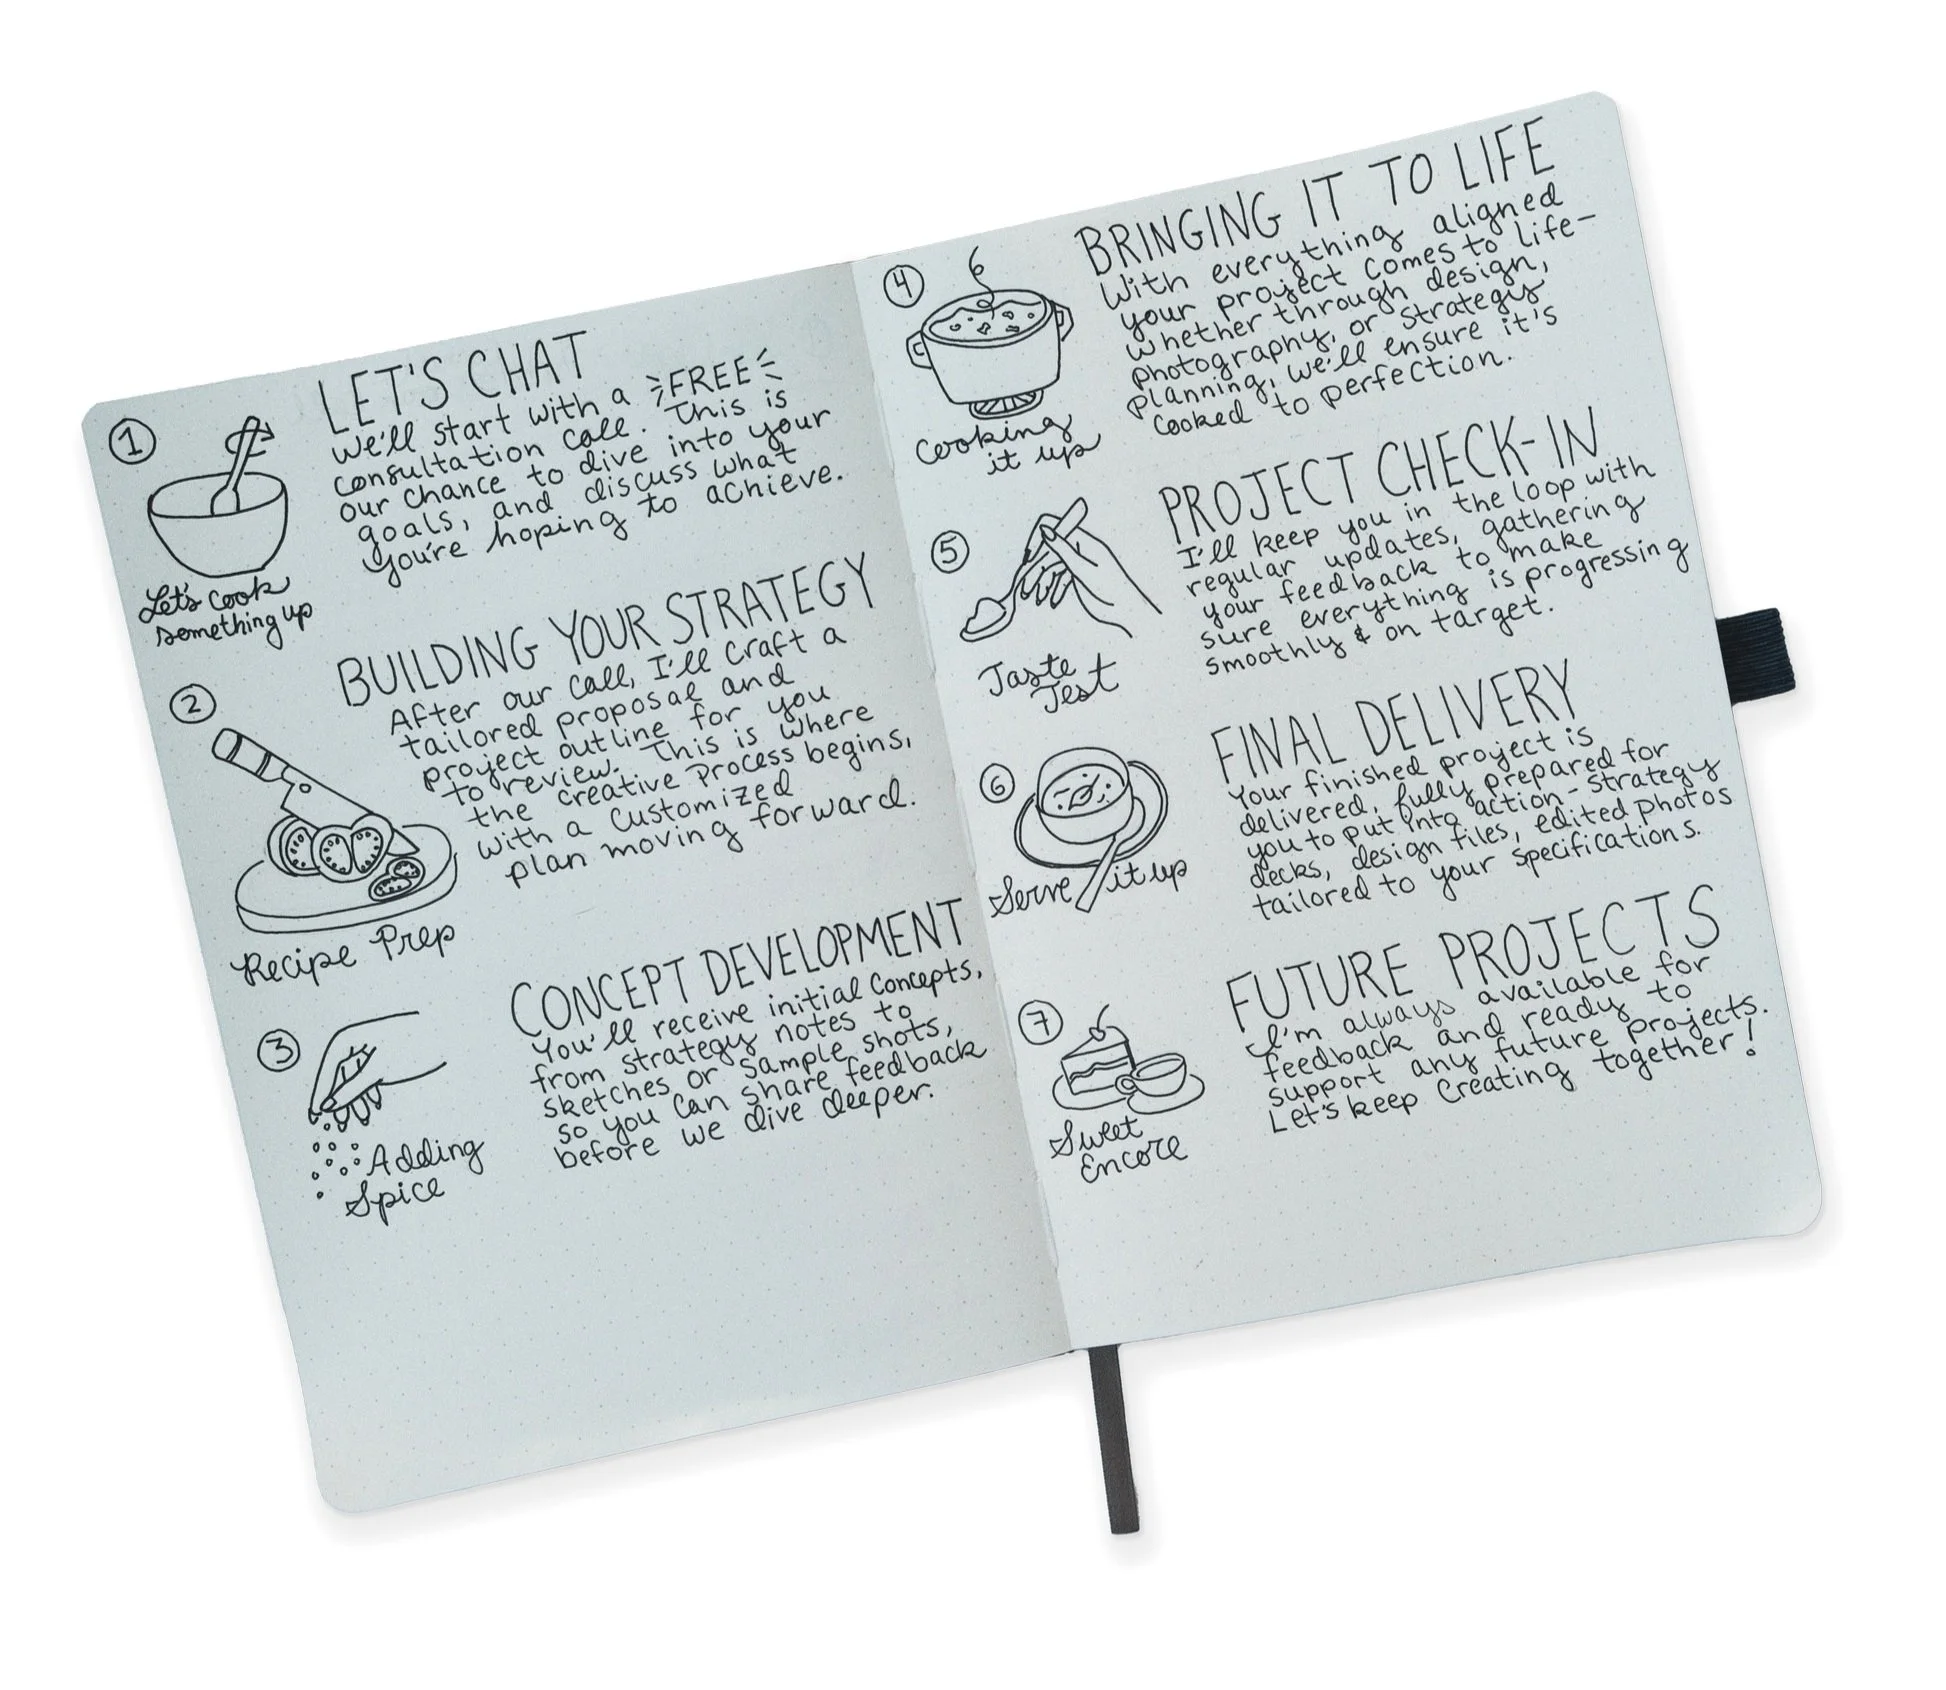 1
LET'S CHAT
We'll start with a FREE
consultation call. This is
our chance to dive into your
goals, and discuss what
you're hoping to achieve.
Let's cook
something up
2
BUILDING YOUR STRATEGY
After our call, I'll craft a
tailored proposal and
project outline for you
to review. This is where
the creative process begins,
with a customized
plan moving forward.
Recipe Prep
3
CONCEPT DEVELOPMENT
You'll receive initial concepts,
from strategy notes to
sketches or sample shots,
so you can share feedback
before we dive deeper.
Adding
Spice
4
BRINGING IT TO LIFE
With everything aligned
your project comes to life-
whether through design,
photography, or strategy
planning, we'll ensure it's
cooked to perfection.
Cooking
it up
5
PROJECT CHECK-IN
I'll keep you in the loop with
regular updates, gathering
your feedback to make
sure everything is progressing
smoothly & on target.
Taste
Test
6
FINAL DELIVERY
Your finished project is
delivered, fully prepared for
you to put into action-strategy
decks, design files, edited photos
tailored to your specifications.
Serve it up
7
FUTURE PROJECTS
I'm always available for
feedback and ready to
support any future projects.
Let's keep creating together!
Sweet
Encore